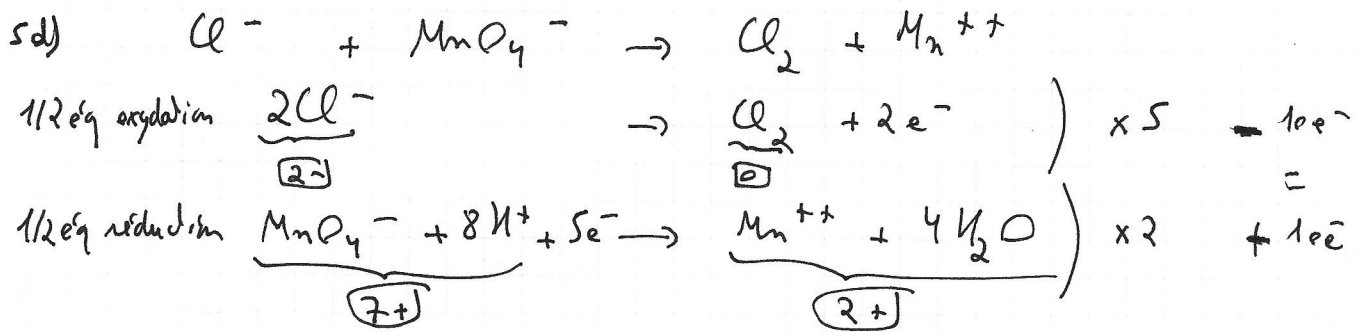 5d) Cl⁻ + MnO₄⁻ → Cl₂ + Mn⁺⁺
1/2 éq oxydation 2Cl⁻ → Cl₂ + 2e⁻ ) x5 - 10e⁻
2- 0 =
1/2 éq réduction MnO₄⁻ + 8H⁺ + 5e⁻ → Mn⁺⁺ + 4H₂O ) x2 + 10e⁻
7+ 2+